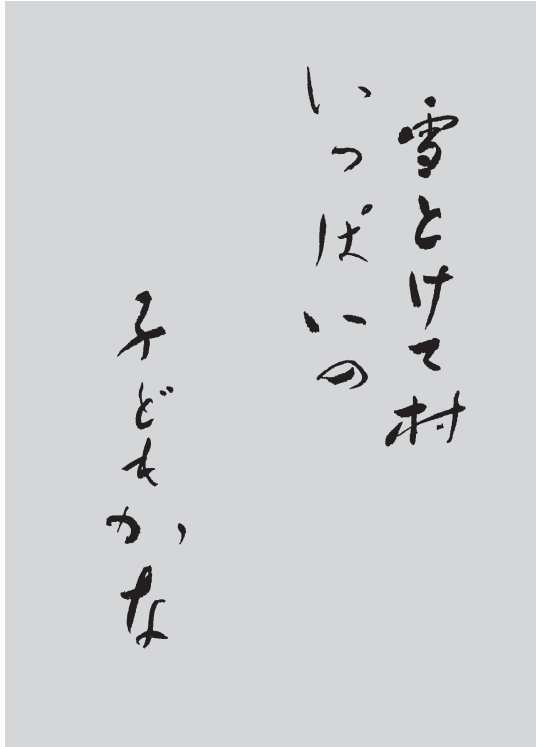 雪とけて村
いっぱいの
子どもかな